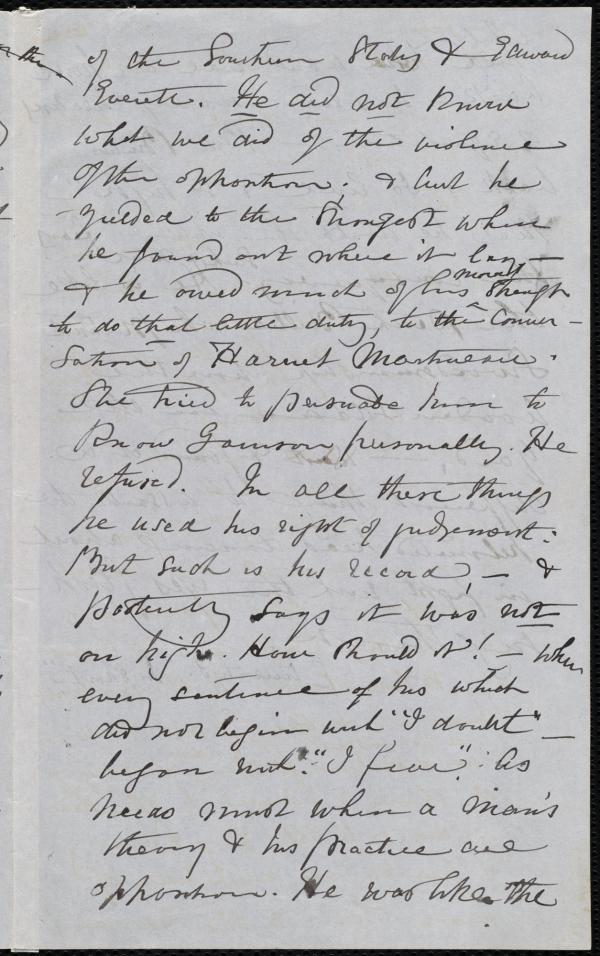 of the Southern Story & Edward
Everett. He did not know
what we did of the violence
of the opposition; & but he
yielded to the strongest when
he found out where it lay, —
& he owed much of his moral strength
to do that little duty, to the conver-
sation of Harriet Martineau.
She tried to persuade him to
know Garrison personally. He
refused. In all these things
he used his right of judgement:
But such is his record, — &
posterity says it was not
on high. How should it! — when
every sentence of his which
did not begin with "I doubt" —
began with "I fear". As
needs must when a man's
theory & his practice are
opposition. He was like the